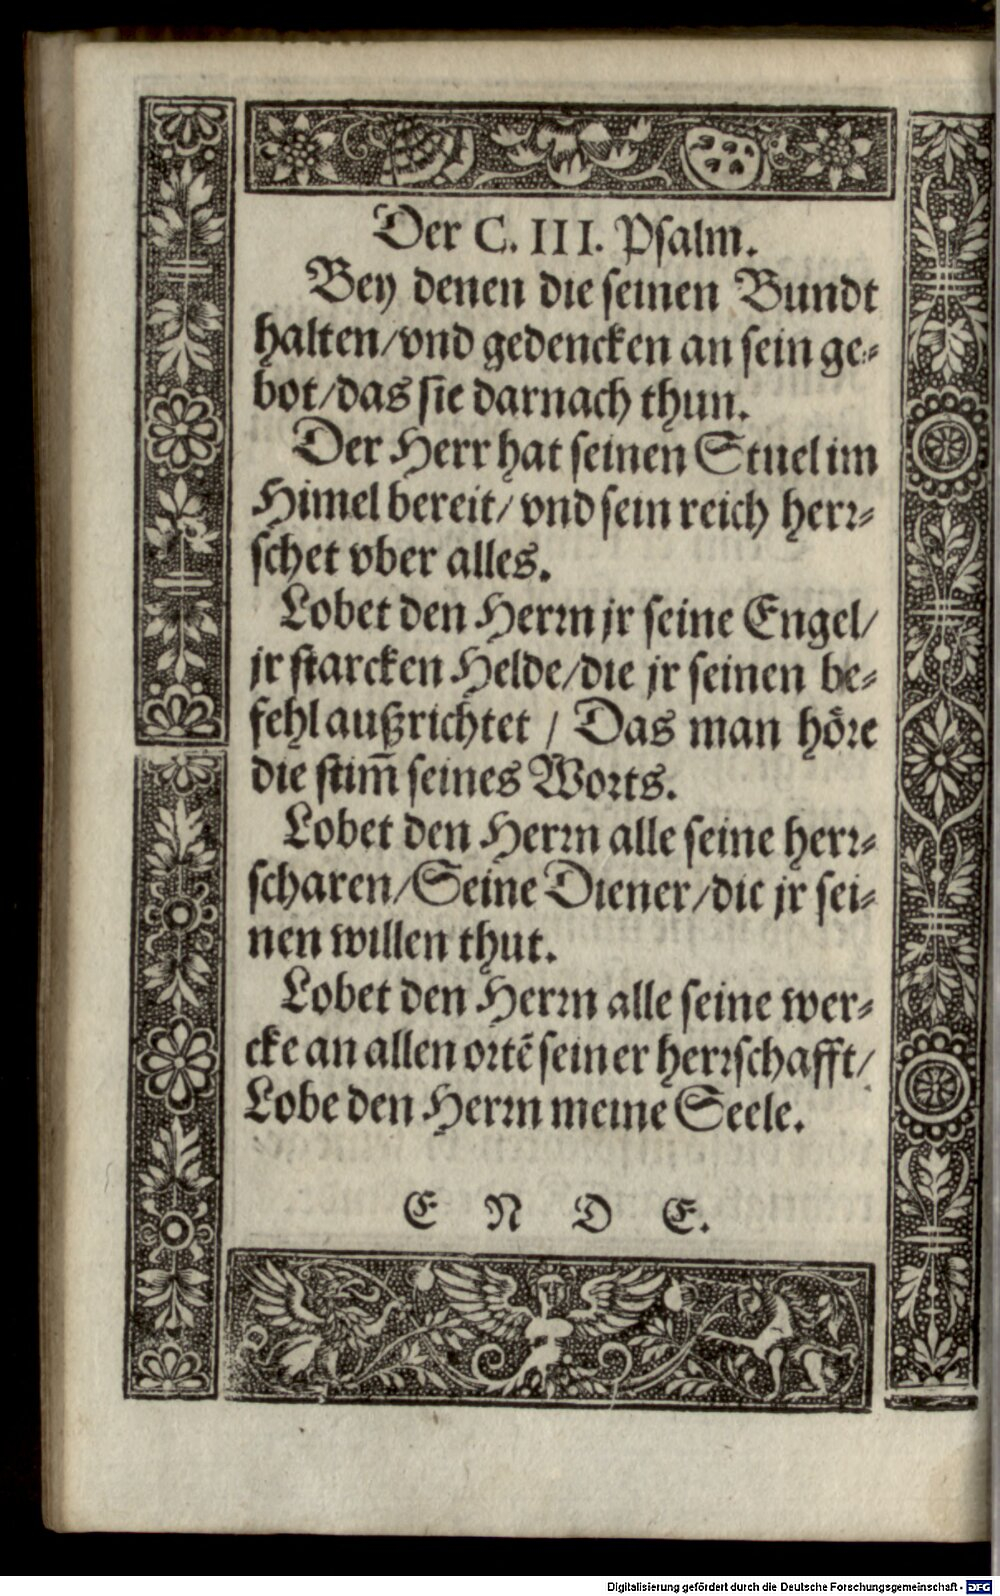 Der C. III. Psalm.
Bey denen die seinen Bundt
halten/vnd gedencken an sein ge-
bot/das sie darnach thun.
Der Herr hat seinen Stuel im
Himel bereit/ vnd sein reich herr-
schet vber alles.
Lobet den Herrn jr seine Engel/
jr starcken Helde/die jr seinen be-
fehl außrichtet / Das man höre
die stim̃ seines Worts.
Lobet den Herrn alle seine herr-
scharen/Seine Diener/die jr sei-
nen willen thut.
Lobet den Herrn alle seine wer-
cke an allen ortẽ seiner herrschafft/
Lobe den Herrn meine Seele.
E N D E.
Digitalisierung gefördert durch die Deutsche Forschungsgemeinschaft - DFG